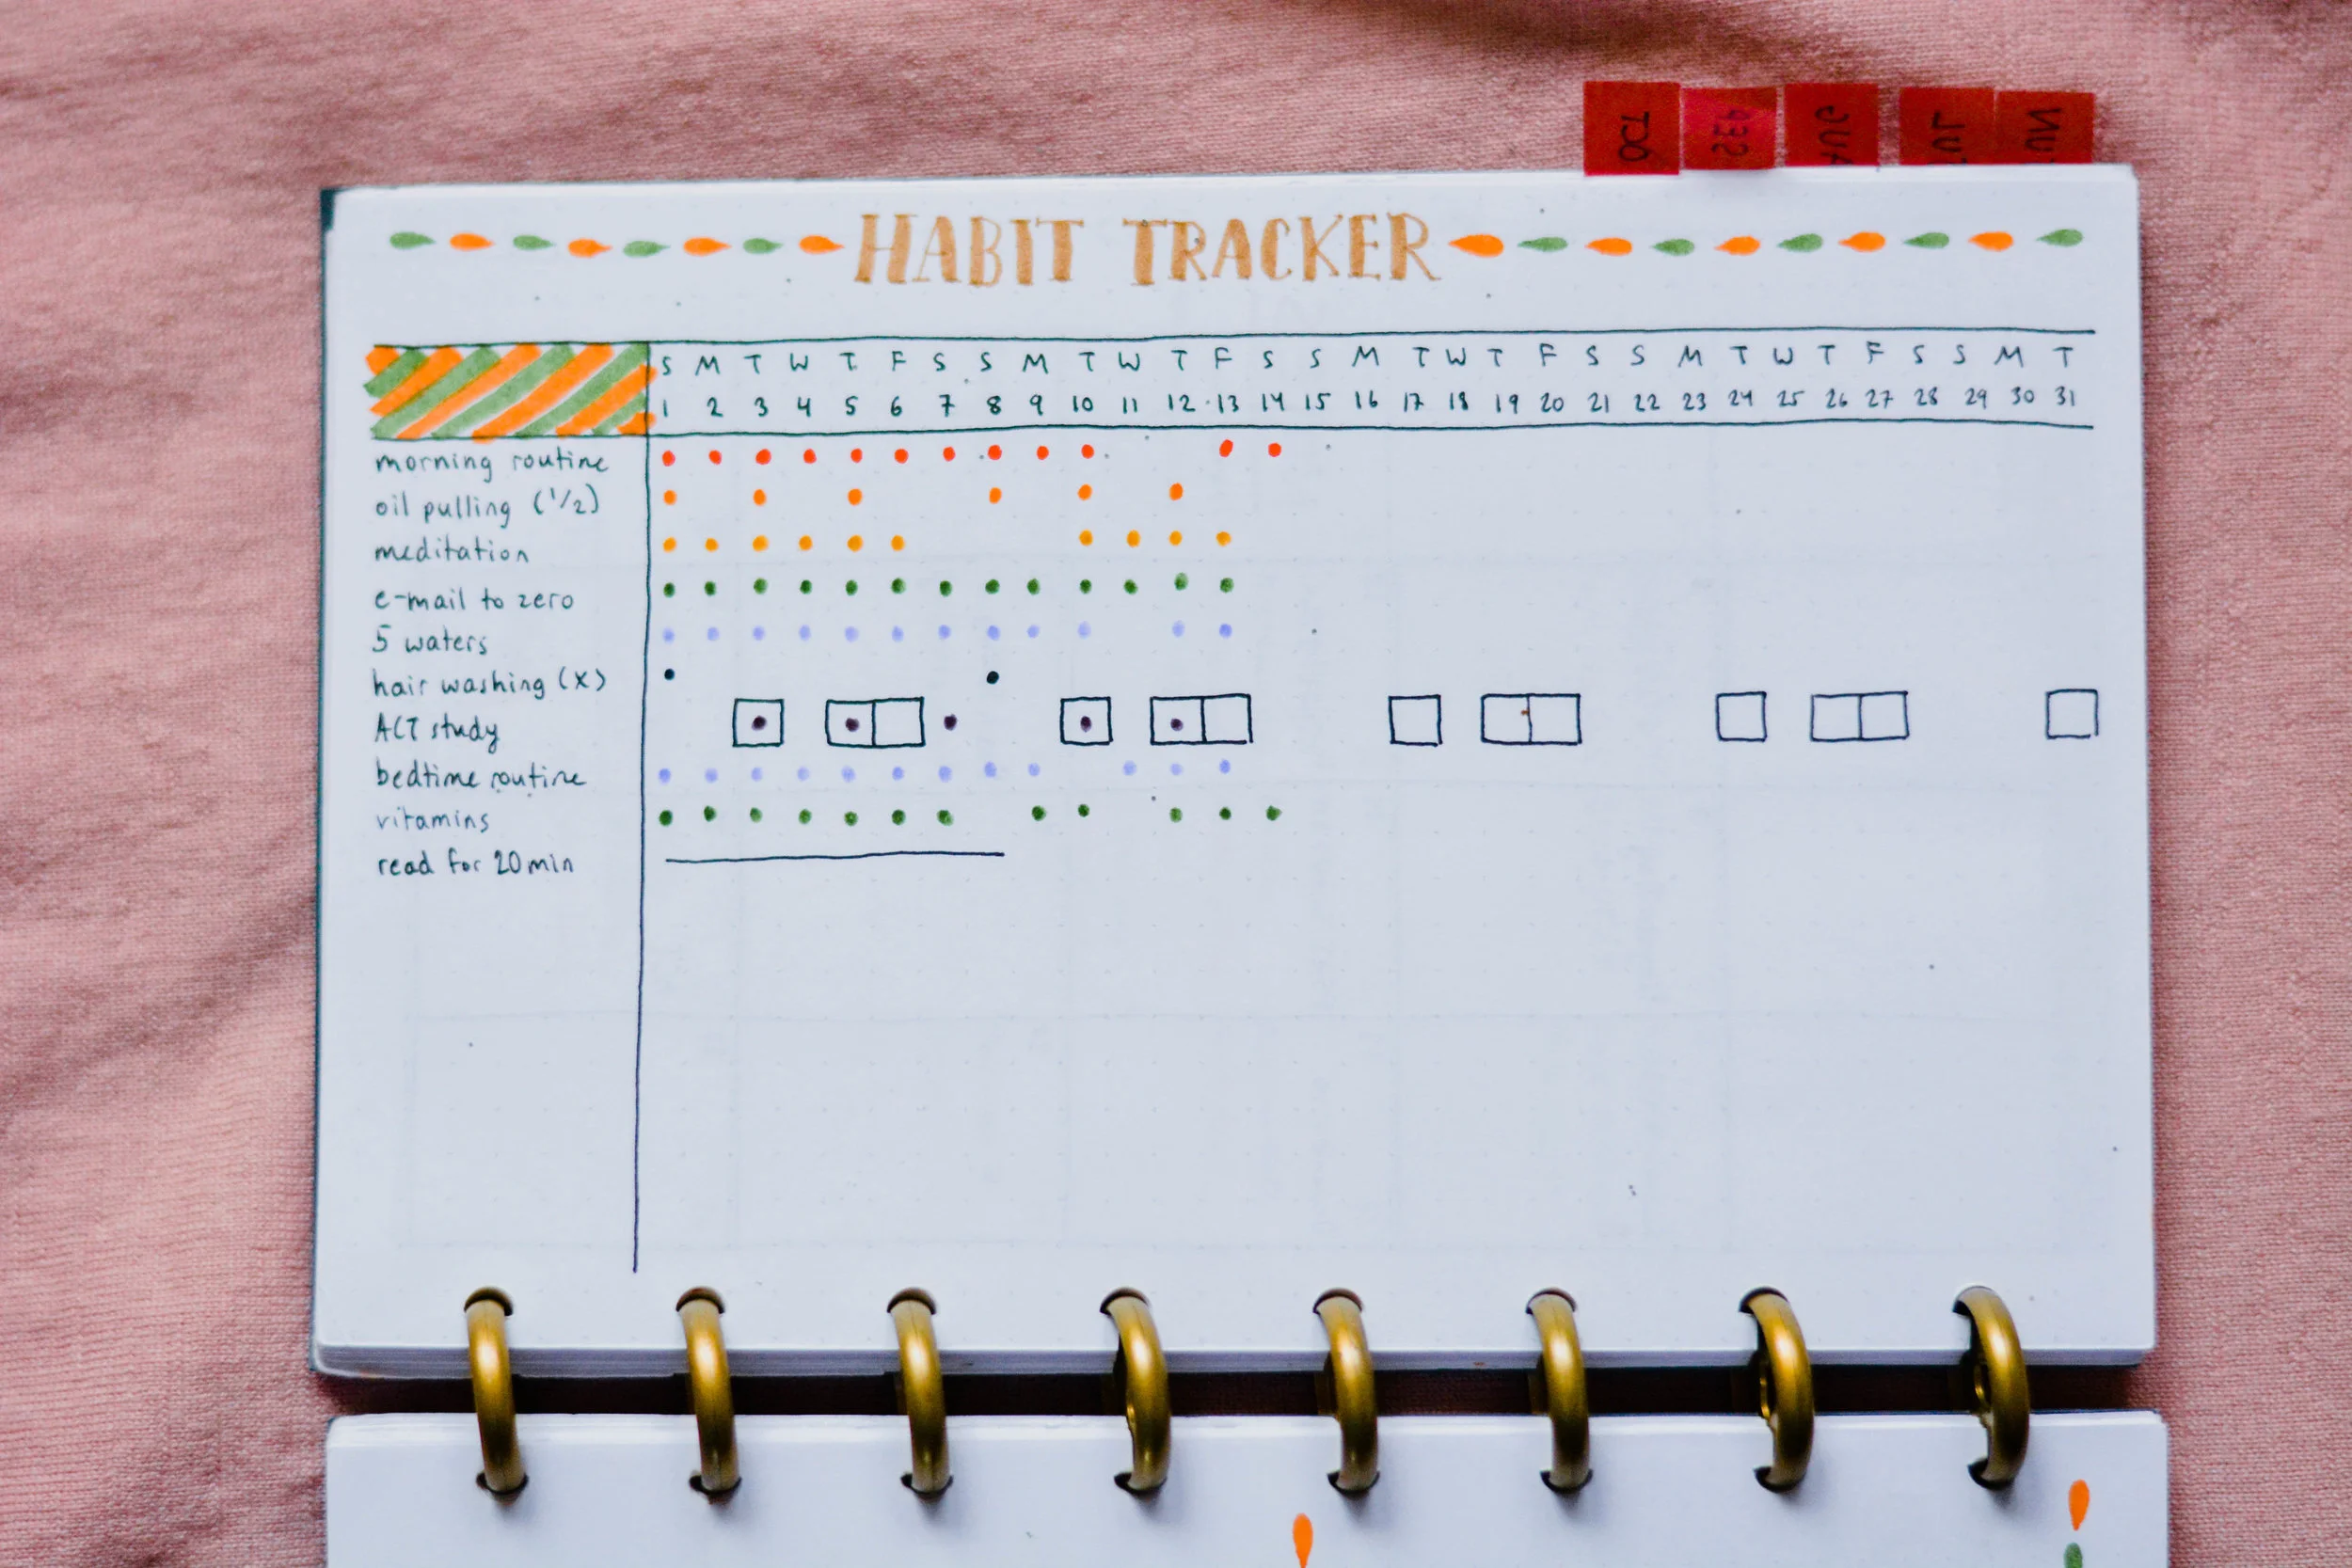 OCT
SEP
JUL
HABIT TRACKER
S M T W T F S S M T W T F S S M T W T F S S M T W T F S S M T
1 2 3 4 5 6 7 8 9 10 11 12 13 14 15 16 17 18 19 20 21 22 23 24 25 26 27 28 29 30 31
morning routine
oil pulling (1/2)
meditation
e-mail to zero
5 waters
hair washing (x)
ACT study
bedtime routine
vitamins
read for 20 min